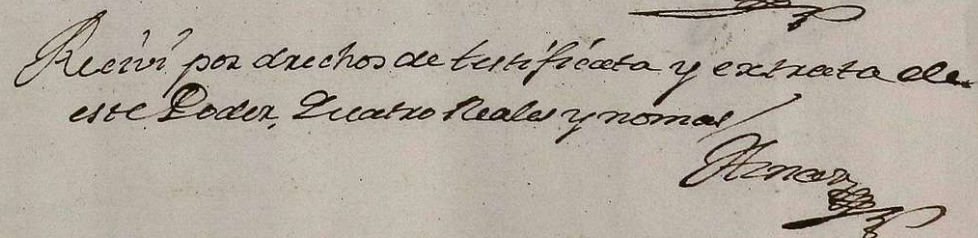 Recivi por drechos de testificata y extrata de
este Poder, Quatro Reales y nomas/
Aznar